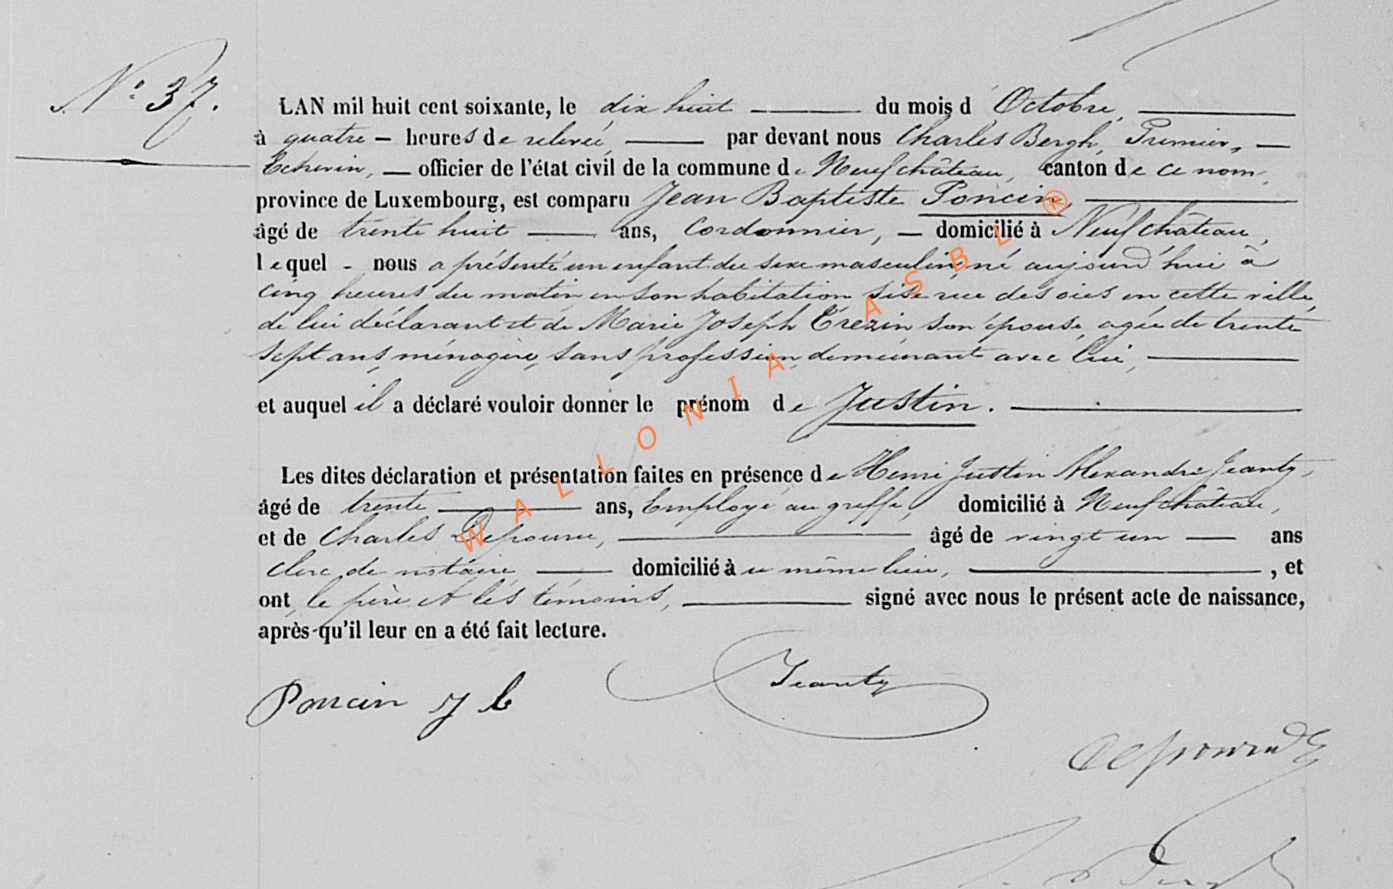 N° 37.
LAN mil huit cent soixante, le dix huit du mois d Octobre,
à quatre – heures de relevée, par devant nous Charles Bergh, Premier
Echevin, — officier de l'état civil de la commune de Neufchâteau, canton de ce nom,
province de Luxembourg, est comparu Jean Baptiste Poncin,
âgé de trente huit ans, Cordonnier, — domicilié à Neufchâteau,
lequel - nous a présenté un enfant du sexe masculin né aujourd'hui à
cinq heures du matin en son habitation sise rue des oies en cette ville,
de lui déclarant et de Marie Joseph Erezin son épouse, agée de trente
sept ans, ménagère, sans profession, demeurant avec lui,
et auquel il a déclaré vouloir donner le prénom de Justin.
Les dites déclaration et présentation faites en présence de Henri Justin Alexandre Jeanty,
âgé de trente ans, Employé au greffe, domicilié à Neufchâteau,
et de Charles âgé de vingt un — ans
clerc de notaire domicilié à ce même lieu, , et
ont le père et les témoins, signé avec nous le présent acte de naissance,
après qu'il leur en a été fait lecture.
Poncin J b
Jeanty
WALLONIA ASBL ®